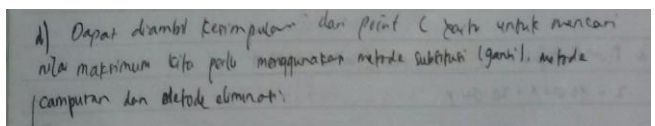 d) Dapat diambil kesimpulan dari point C yaitu untuk mencari
nilai maksimum kita perlu menggunakan metode subtitusi (ganti), metode
campuran dan metode eliminasi.